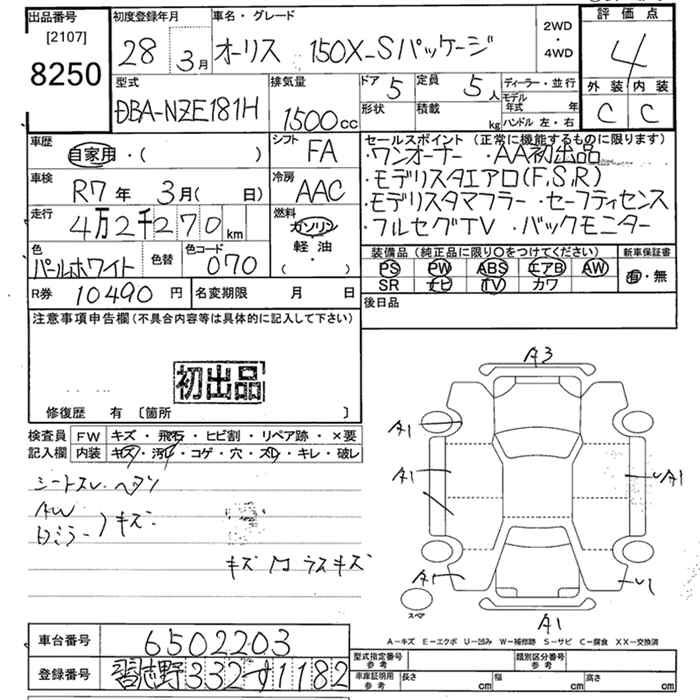 出品番号
[2107]
8250
初度登録年月
28年3月
車名・グレード
オーリス 150X-Sパッケージ
2WD
・
4WD
評価点
4
外装 内装
C C
型式
DBA-NZE181H
排気量
1500cc
ドア 5
定員 5人
形状
積載 kg
ディーラー・並行
モデル年式 年
ハンドル 左・右
車歴
自家用・( )
シフト
FA
車検
R7年 3月( 日)
冷房
AAC
走行
4万2千270km
燃料
ガソリン
軽油
( ・ )
色
パールホワイト
色替
色コード
070
R券 10490円
名変期限 月 日
セールスポイント (正常に機能するものに限ります)
・ワンオーナー ・AA初出品
・モデリスタエアロ(F,S,R)
・モデリスタマフラー ・セーフティセンス
・フルセグTV ・バックモニター
装備品 (純正品に限り○をつけてください)
PS PW ABS エアB AW
SR ナビ TV カワ
新車保証書
有・無
後日品
注意事項申告欄 (不具合内容等は具体的に記入して下さい)
初出品
修復歴 有 〔箇所 〕
検査員記入欄
FW キズ・飛石・ヒビ割・リペア跡・×要
内装 キズ・汚れ・コゲ・穴・スレ・キレ・破レ
シートスレ ヘタリ
AW
ドミラー ) キズ
キズ
A3
A1
A1
A1
A1
A1
スペア
A-キズ E-エクボ U-凹み W-補修跡 S-サビ C-腐食 XX-交換済
車台番号 6502203
登録番号 習志野332す1182
型式指定番号
参考
類別区分番号
参考
車庫証明用
参考
長さ cm 幅 cm 高さ cm